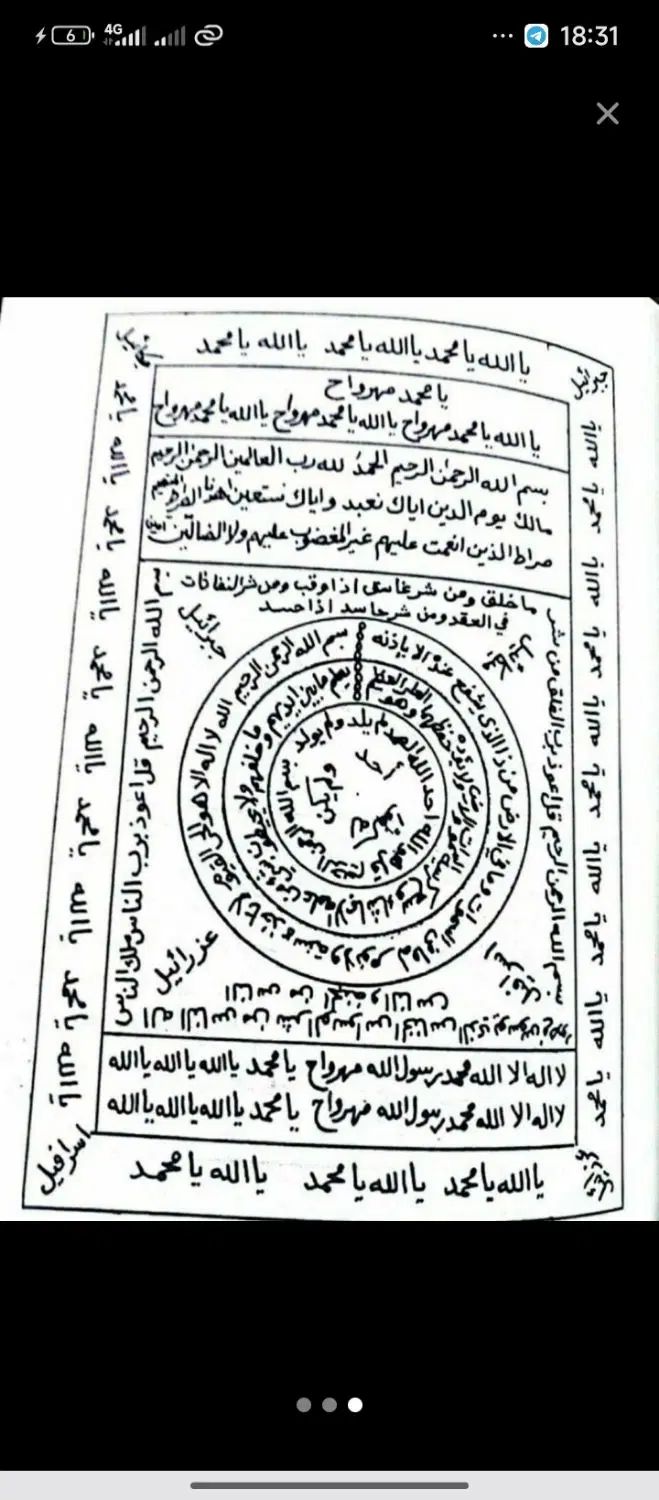 4G
6
18:31
ميكائيل
يا الله يا محمد يا الله يا محمد يا الله يا محمد
يا محمد مهرواح
يا الله يا محمد مهرواح يا الله يا محمد مهرواح يا الله يا محمد مهرواح
بسم الله الرحمن الرحيم الحمد لله رب العالمين الرحمن الرحيم
مالك يوم الدين اياك نعبد واياك نستعين اهدنا الصراط المستقيم
صراط الذين انعمت عليهم غير المغضوب عليهم ولا الضالين
ما خلق ومن شر غاسق اذا وقب ومن شر النفاثات
في العقد ومن شر حاسد اذا حسد
جبرائيل
ميكائيل
بسم الله الرحمن الرحيم قل اعوذ برب الفلق من شر
الله الرحمن الرحيم قل اعوذ برب الناس ملك الناس
بسم الله الرحمن الرحيم الله لا اله الا هو الحي القيوم لا تاخذه سنة ولا نوم له ما في السموات وما في الارض من ذا الذي يشفع عنده الا باذنه
يعلم ما بين ايديهم وما خلفهم ولا يحيطون بشيء من علمه الا بما شاء وسع كرسيه السموات والارض ولا يؤده حفظهما وهو العلي العظيم
بسم الله الرحمن الرحيم قل هو الله احد الله الصمد لم يلد ولم يولد
احد
عزرائيل
اسرافيل
اله الناس من شر الوسواس الخناس الذي يوسوس في صدور
الناس من الجنة والناس
لا اله الا الله محمد رسول الله مهرواح يا محمد يا الله يا الله يا الله
لا اله الا الله محمد رسول الله مهرواح يا محمد يا الله يا الله يا الله
يا الله يا محمد يا الله يا محمد يا الله يا محمد
اسرافيل
يا الله يا محمد يا الله يا محمد يا الله يا محمد يا الله يا محمد يا الله يا محمد
يا الله يا محمد يا الله يا محمد يا الله يا محمد يا الله يا محمد يا الله يا محمد